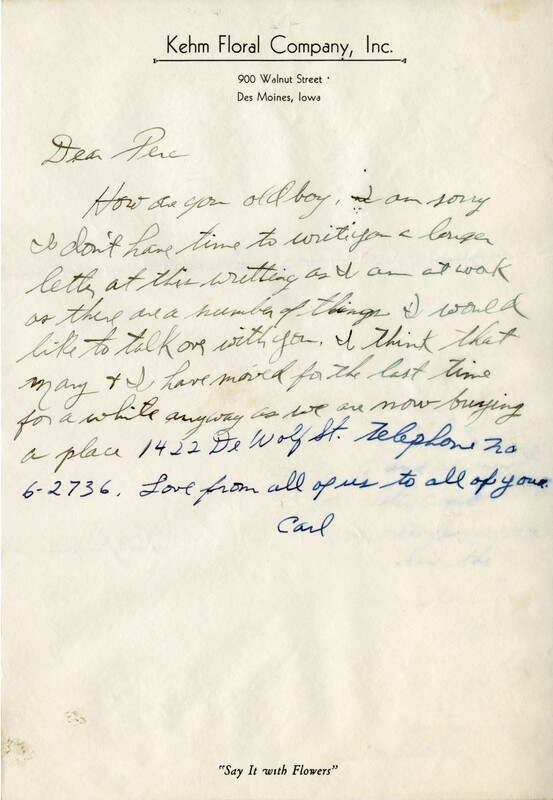 Kehm Floral Company, Inc.
900 Walnut Street
Des Moines, Iowa
Dear Perc
How are you old boy. I am sorry
I don't have time to write you a longer
letter at this writting as I am at work
as there are a number of things I would
like to talk over with you. I think that
Mary & I have moved for the last time
for a while anyway as we are now buying
a place 1422 De Wolf St. Telephone no
6-2736. Love from all of us to all of you.
Carl
"Say It with Flowers"